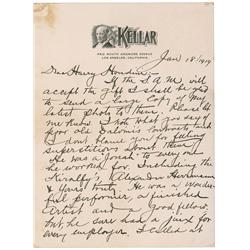 KELLAR
460 SOUTH ARDMORE AVENUE
LOS ANGELES, CALIFORNIA
Jan 18/1919
Dear Harry Houdini
If the S.A.M. will
accept the gift I shall be glad
to send a large copy of my
latest photo to them. Place
me Note what you say of
poor old and
I dont blame you for feeling
superstitious about them
He was a "Jonah" to everyone
he worked for Including the
Kiralfy's, Alexander Herrmann
& Yours truly. He was a wonder-
ful performer, a finished
Artist and a good fellow
but he sure had a jinx for
every employer. I called at